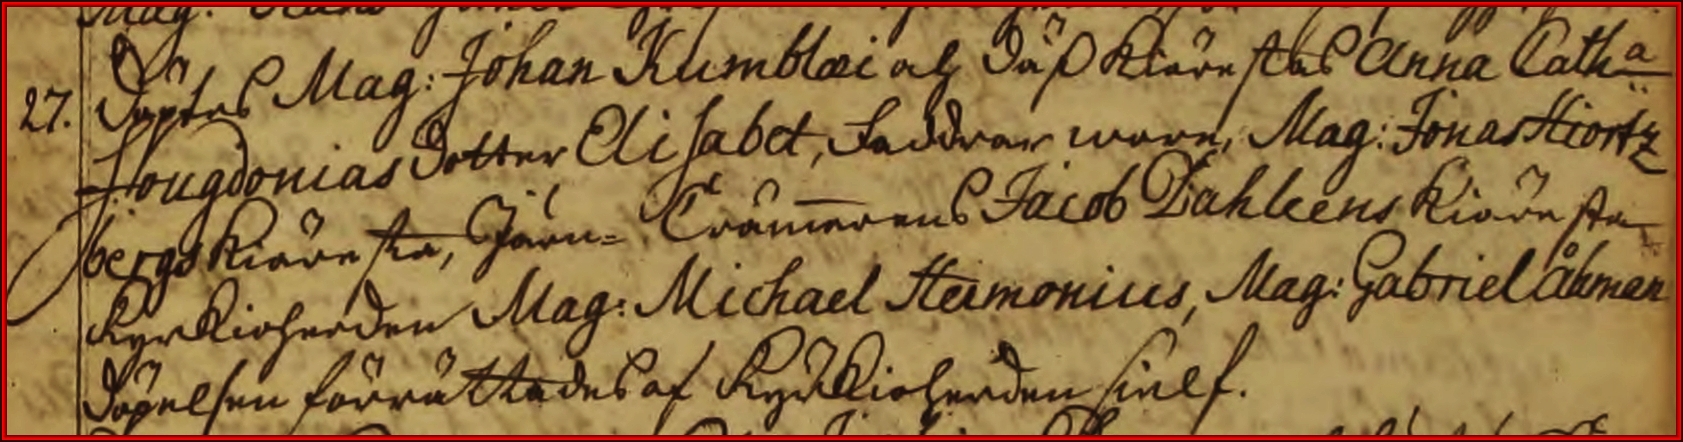 27. Döptes Mag: Johan Kumblæi och däß Kiärestas Anna Catha
Hougdonias dotter Elisabet, Faddrar wore, Mag: Jonas Hiortz
bergs Kiäresta, Järn= Crämmerens Jacob Dahleens Kiäresta
Kyrkioherden Mag: Michael Hermonius, Mag: Gabriel Åhman
döpelsen förrättades af Kyrkioherden sielf.